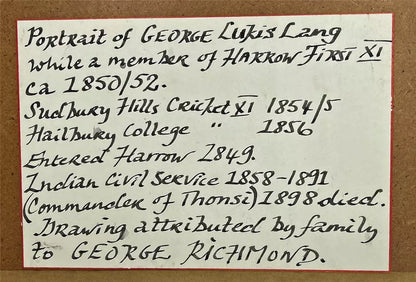 Portrait of GEORGE Lukis Lang
while a member of HARROW FIRST XI
ca 1850/52.
Sudbury Hills Cricket XI 1854/5
Hailbury College " 1856
Entered Harrow 1849.
Indian Civil Service 1858-1891
(Commander of Thonsi) 1898 died.
Drawing attributed by family
to GEORGE RICHMOND.